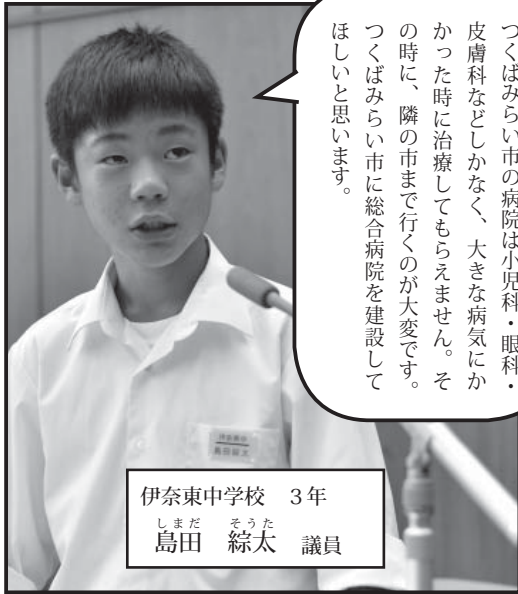 つくばみらい市の病院は小児科・眼科・
皮膚科などしかなく、大きな病気にか
かった時に治療してもらえません。そ
の時に、隣の市まで行くのが大変です。
つくばみらい市に総合病院を建設して
ほしいと思います。
伊奈東中学校　３年
しまだ　そうた
島田　綜太　議員